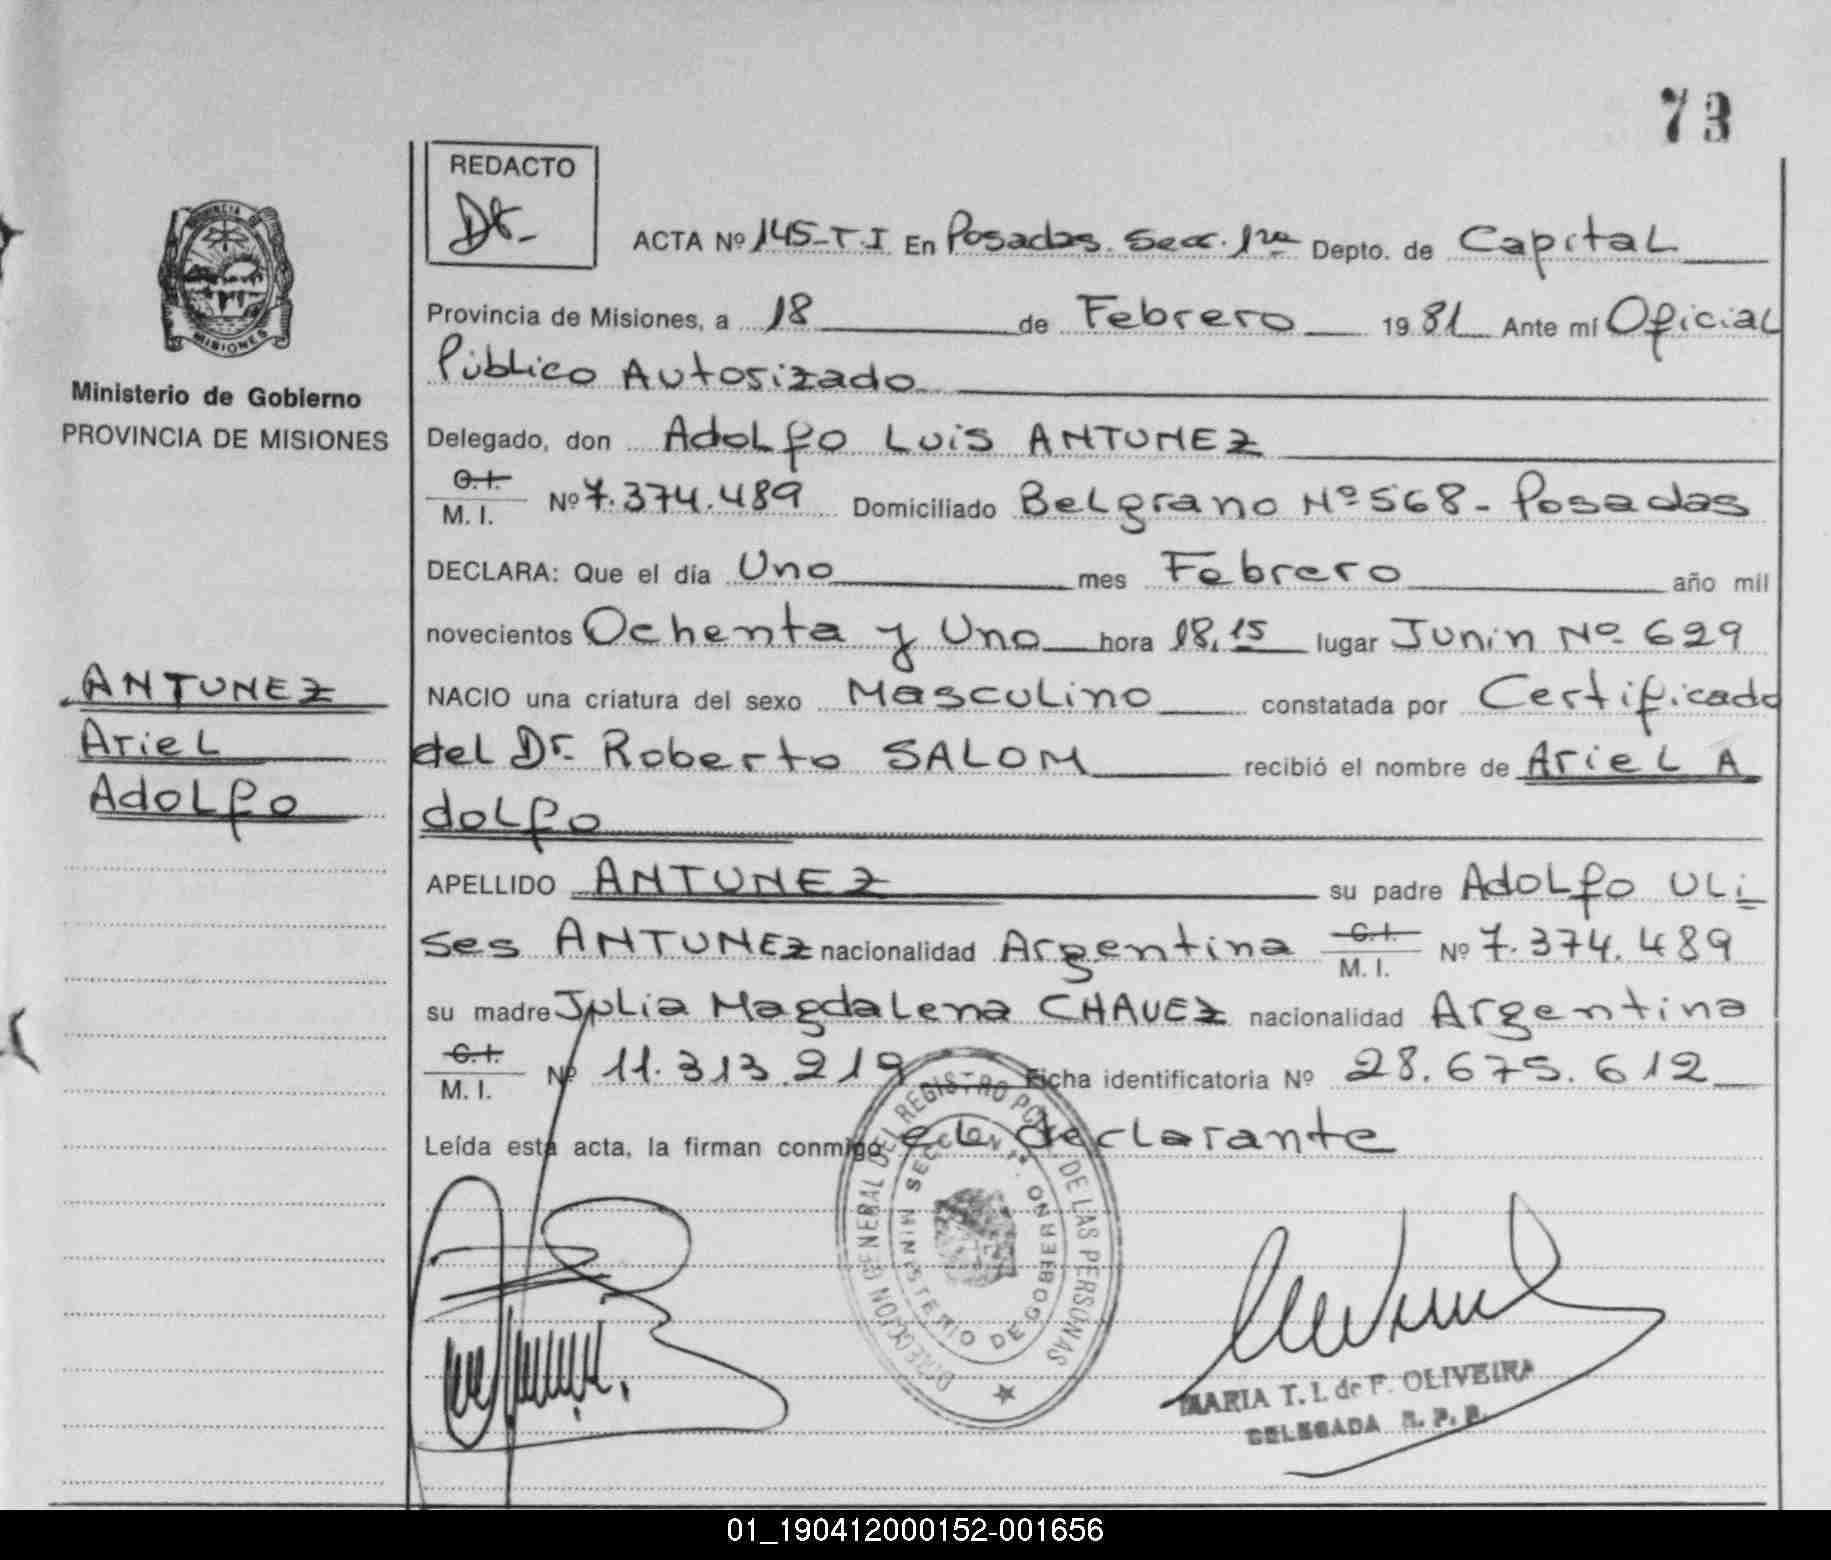 73
REDACTO
ACTA Nº 145-T.I En Posadas. Secc. 1ra Depto. de Capital
PROVINCIA DE MISIONES
Provincia de Misiones, a 18 de Febrero 1981 Ante mí Oficial
Público Autorizado
Ministerio de Gobierno
PROVINCIA DE MISIONES
Delegado, don Adolfo Luis ANTUNEZ
C.I. M. I. Nº 7.374.489 Domiciliado Belgrano Nº 568- Posadas
DECLARA: Que el día Uno mes Febrero año mil
novecientos Ochenta y Uno hora 18,15 lugar Junin Nº 629
ANTUNEZ
Ariel
Adolfo
NACIO una criatura del sexo Masculino constatada por Certificado
del Dr. Roberto SALOM recibió el nombre de Ariel A
dolfo
APELLIDO ANTUNEZ su padre Adolfo Uli
ses ANTUNEZ nacionalidad Argentina C.I. M. I. Nº 7.374.489
su madre Julia Magdalena CHAVEZ nacionalidad Argentina
C.I. M. I. Nº 11.313.219 Ficha identificatoria Nº 28.675.612
Leída esta acta, la firman conmigo el declarante
DIRECCION GENERAL DEL REGISTRO PCIAL. DE LAS PERSONAS
SECCION 1ª. MINISTERIO DE GOBIERNO
MARIA T. I. de F. OLIVEIRA
DELEGADA R. P. P.
01_190412000152-001656